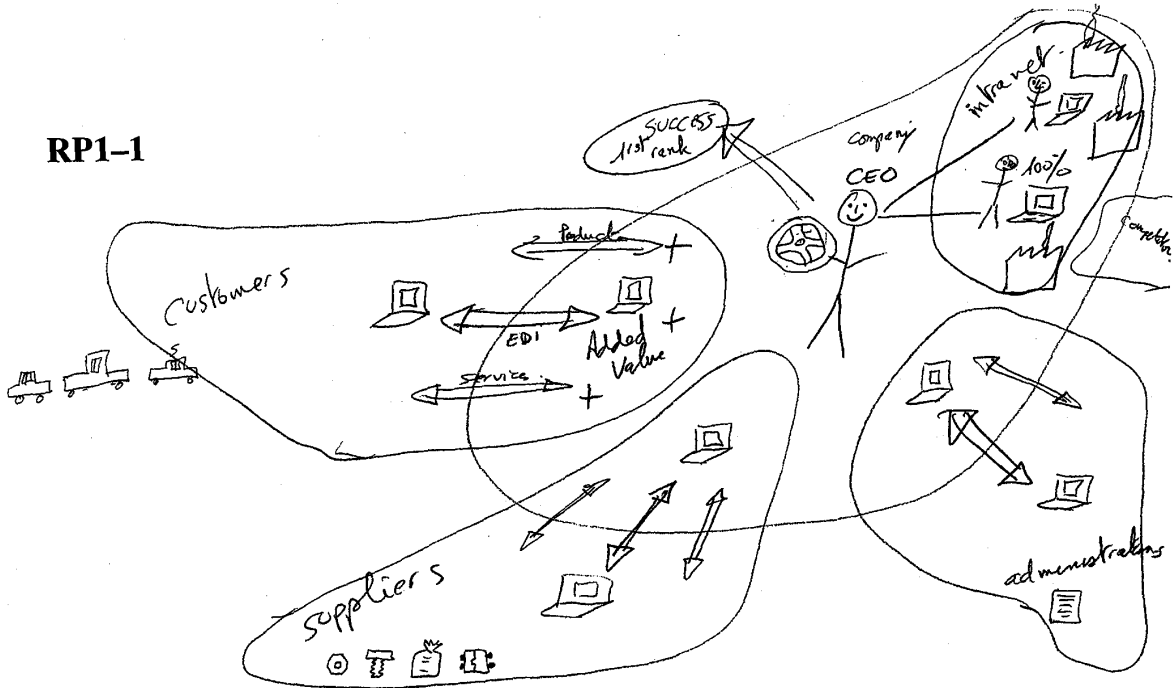 RP1–1
SUCCESS
1rst rank
company
CEO
intranet.
100%
Products
Customers
EDI
Added
Value
Services
suppliers
administrations